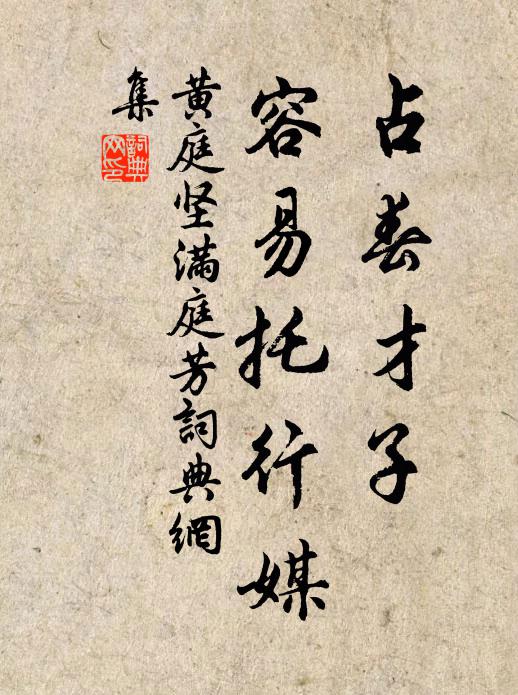 占春才子
容易托行媒
黄庭坚满庭芳詞典網
集
詞典
网印